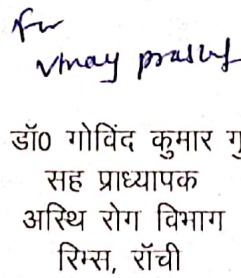 For
Vinay Prasad
डॉ0 गोविंद कुमार गु
सह प्राध्यापक
अस्थि रोग विभाग
रिम्स, राँची